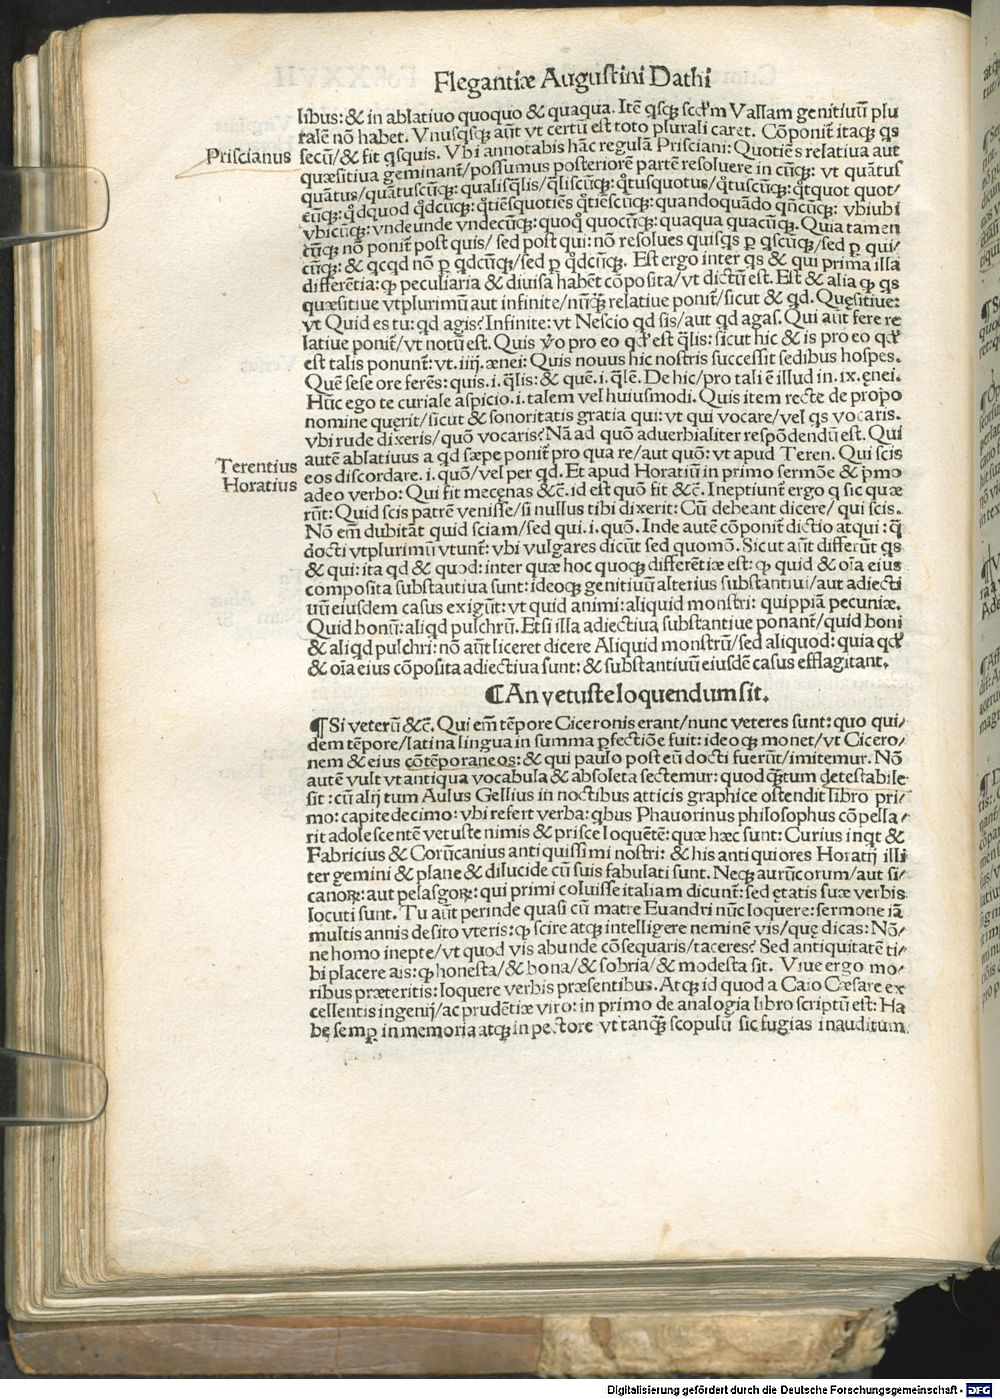 Flegantiæ Augustini Dathi
libus: & in ablatiuo quoquo & quaqua. Itē qsqꝫ scd'm Vallam genitiuū plu
ralē nō habet. Vnusqsqꝫ aūt vt certū est toto plurali caret. Cōponit̃ itaqꝫ qs
Priscianus
secū/& fit qsquis. Vbi annotabis hāc regulā Prisciani: Quotiēs relatiua aut
quæsitiua geminant̃/possumus posteriorē partē resoluere in cūqꝫ: vt quātus
quātus/quātuscūqꝫ: qualisq̄lis/q̄liscūqꝫ: q̊tusquotus/q̊tuscūqꝫ: q̊tquot quot/
cūqꝫ: q̊dquod q̊dcūqꝫ: q̊tiēsquotiēs q̊tiēscūqꝫ: quandoquādo qn̄cūqꝫ: vbiubi
vbicūqꝫ: vndeunde vndecūqꝫ: quoq̊ quocūqꝫ: quaqua quacūqꝫ. Quia tamen
cūqꝫ nō ponit̃ post quis/ sed post qui: nō resolues quisqs ꝑ qscūqꝫ/sed ꝑ qui/
cūqꝫ: & qcqd nō ꝑ qdcūqꝫ/sed ꝑ q̊dcūqꝫ. Est ergo inter qs & qui prima illa
differētia: ꝙ peculiaria & diuisa habēt cōposita/vt dictū est. Est & alia ꝙ qs
quæsitiue vtplurimū aut infinite/nūqꝫ̄ relatiue ponit̃/sicut & qd. Quęsitiue:
vt Quid es tu: qd agis? Infinite: vt Nescio qd sis/aut qd agas. Qui aūt fere re
latiue ponit̃/vt notū est. Quis v̊o pro eo qd' est q̄lis: sicut hic & is pro eo qd'
est talis ponunt̃: vt. iiij. ænei: Quis nouus hic nostris successit sedibus hospes.
Quē sese ore ferēs: quis. i. q̄lis: & quē. i. q̄lē. De hic/pro tali ē illud in. ix. ęnei.
Hūc ego te curiale aspicio. i. talem vel huiusmodi. Quis item recte de propo
nomine quęrit/sicut & sonoritatis gratia qui: vt qui vocare/vel qs vocaris.
vbi rude dixeris/quō vocaris? Nā ad quō aduerbialiter respōdendū est. Qui
Terentius
autē ablatiuus a qd sæpe ponit̃ pro qua re/aut quō: vt apud Teren. Qui scis
Horatius
eos discordare. i. quō/vel per qd. Et apud Horatiū in primo sermōe & p̊mo
adeo verbo: Qui fit mecęnas &c̄. id est quō fit &c̄. Ineptiunt̃ ergo q sic quæ
rūt: Quid scis patrē venisse/si nullus tibi dixerit: Cū debeant dicere/ qui scis.
Nō em̄ dubitāt quid sciam/sed qui. i. quō. Inde autē cōponit̃ dictio atqui: q̄
docti vtplurimū vtunt̃: vbi vulgares dicūt sed quomō. Sicut aūt differūt qs
& qui: ita qd & quod: inter quæ hoc quoqꝫ differētiæ est: ꝙ quid & oīa eius
composita substautiua sunt: ideoqꝫ genitiuū alterius substantiui/aut adiecti
uū eiusdem casus exigūt: vt quid animi: aliquid monstri: quippiā pecuniæ.
Quid bonū: aliqd pulchrū. Etsi illa adiectiua substantiue ponant̃/quid boni
& aliqd pulchri: nō aūt liceret dicere Aliquid monstrū/sed aliquod: quia qd'
& oīa eius cōposita adiectiua sunt: & substantiuū eiusdē casus efflagitant.
¶An vetuste loquendum sit.
¶Si veterū &c̄. Qui em̄ tēpore Ciceronis erant/nunc veteres sunt: quo qui/
dem tēpore/latina lingua in summa ꝑfectiōe fuit: ideoqꝫ monet/vt Cicero/
nem & eius cōtēporaneos: & qui paulo post eū docti fuerūt/imitemur. Nō
autē vult vt antiqua vocabula & absoleta sectemur: quod qꝫ̄tum detestabile
sit: cū alij tum Aulus Gellius in noctibus atticis graphice ostendit libro pri/
mo: capite decimo: vbi refert verba: qbus Phauorinus philosophus cōpella/
rit adolescentē vetuste nimis & prisce loquētē: quæ hæc sunt: Curius inqt &
Fabricius & Corūcanius antiquissimi nostri: & his antiquiores Horatij illi
ter gemini & plane & dilucide cū suis fabulati sunt. Neqꝫ aurūcorum/aut si/
canoꝝ: aut pelasgoꝝ: qui primi coluisse italiam dicunt̃: sed ętatis suæ verbis
locuti sunt. Tu aūt perinde quasi cū matre Euandri nūc loquere: sermone iā
multis annis desito vteris: ꝙ scire atqꝫ intelligere neminē vis/quę dicas: Nō/
ne homo inepte/vt quod vis abunde cōsequaris/taceres? Sed antiquitatē ti/
bi placere ais: ꝙ honesta/& bona/& sobria/& modesta sit. Viue ergo mo/
ribus præteritis: loquere verbis præsentibus. Atqꝫ id quod a Caio Cæsare ex
cellentis ingenij/ac prudētiæ viro: in primo de analogia libro scriptū est: Ha
bę semꝑ in memoria atqꝫ in pectore vt tanqꝫ̄ scopulū sic fugias inauditum
Digitalisierung gefördert durch die Deutsche Forschungsgemeinschaft - DFG